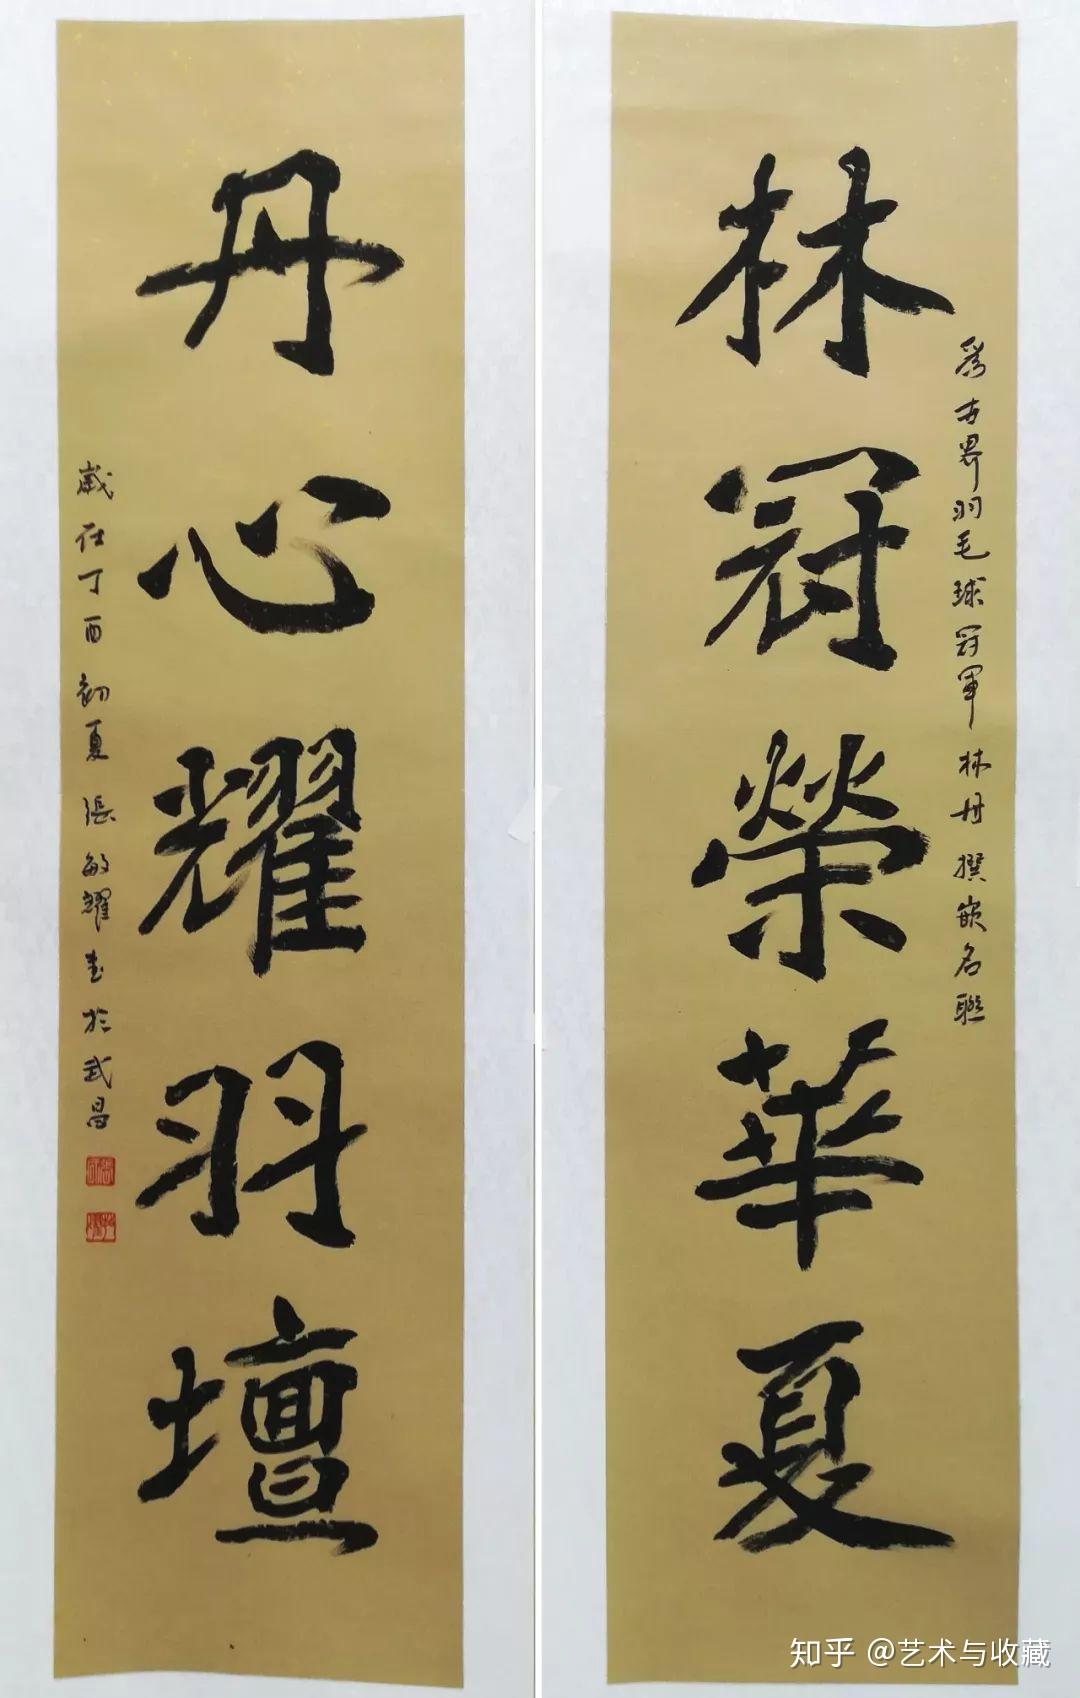 林冠榮華夏
為世界羽毛球冠軍林丹撰嵌名聯
丹心耀羽壇
歲在丁酉初夏張敏耀書於武昌
知乎 @艺术与收藏